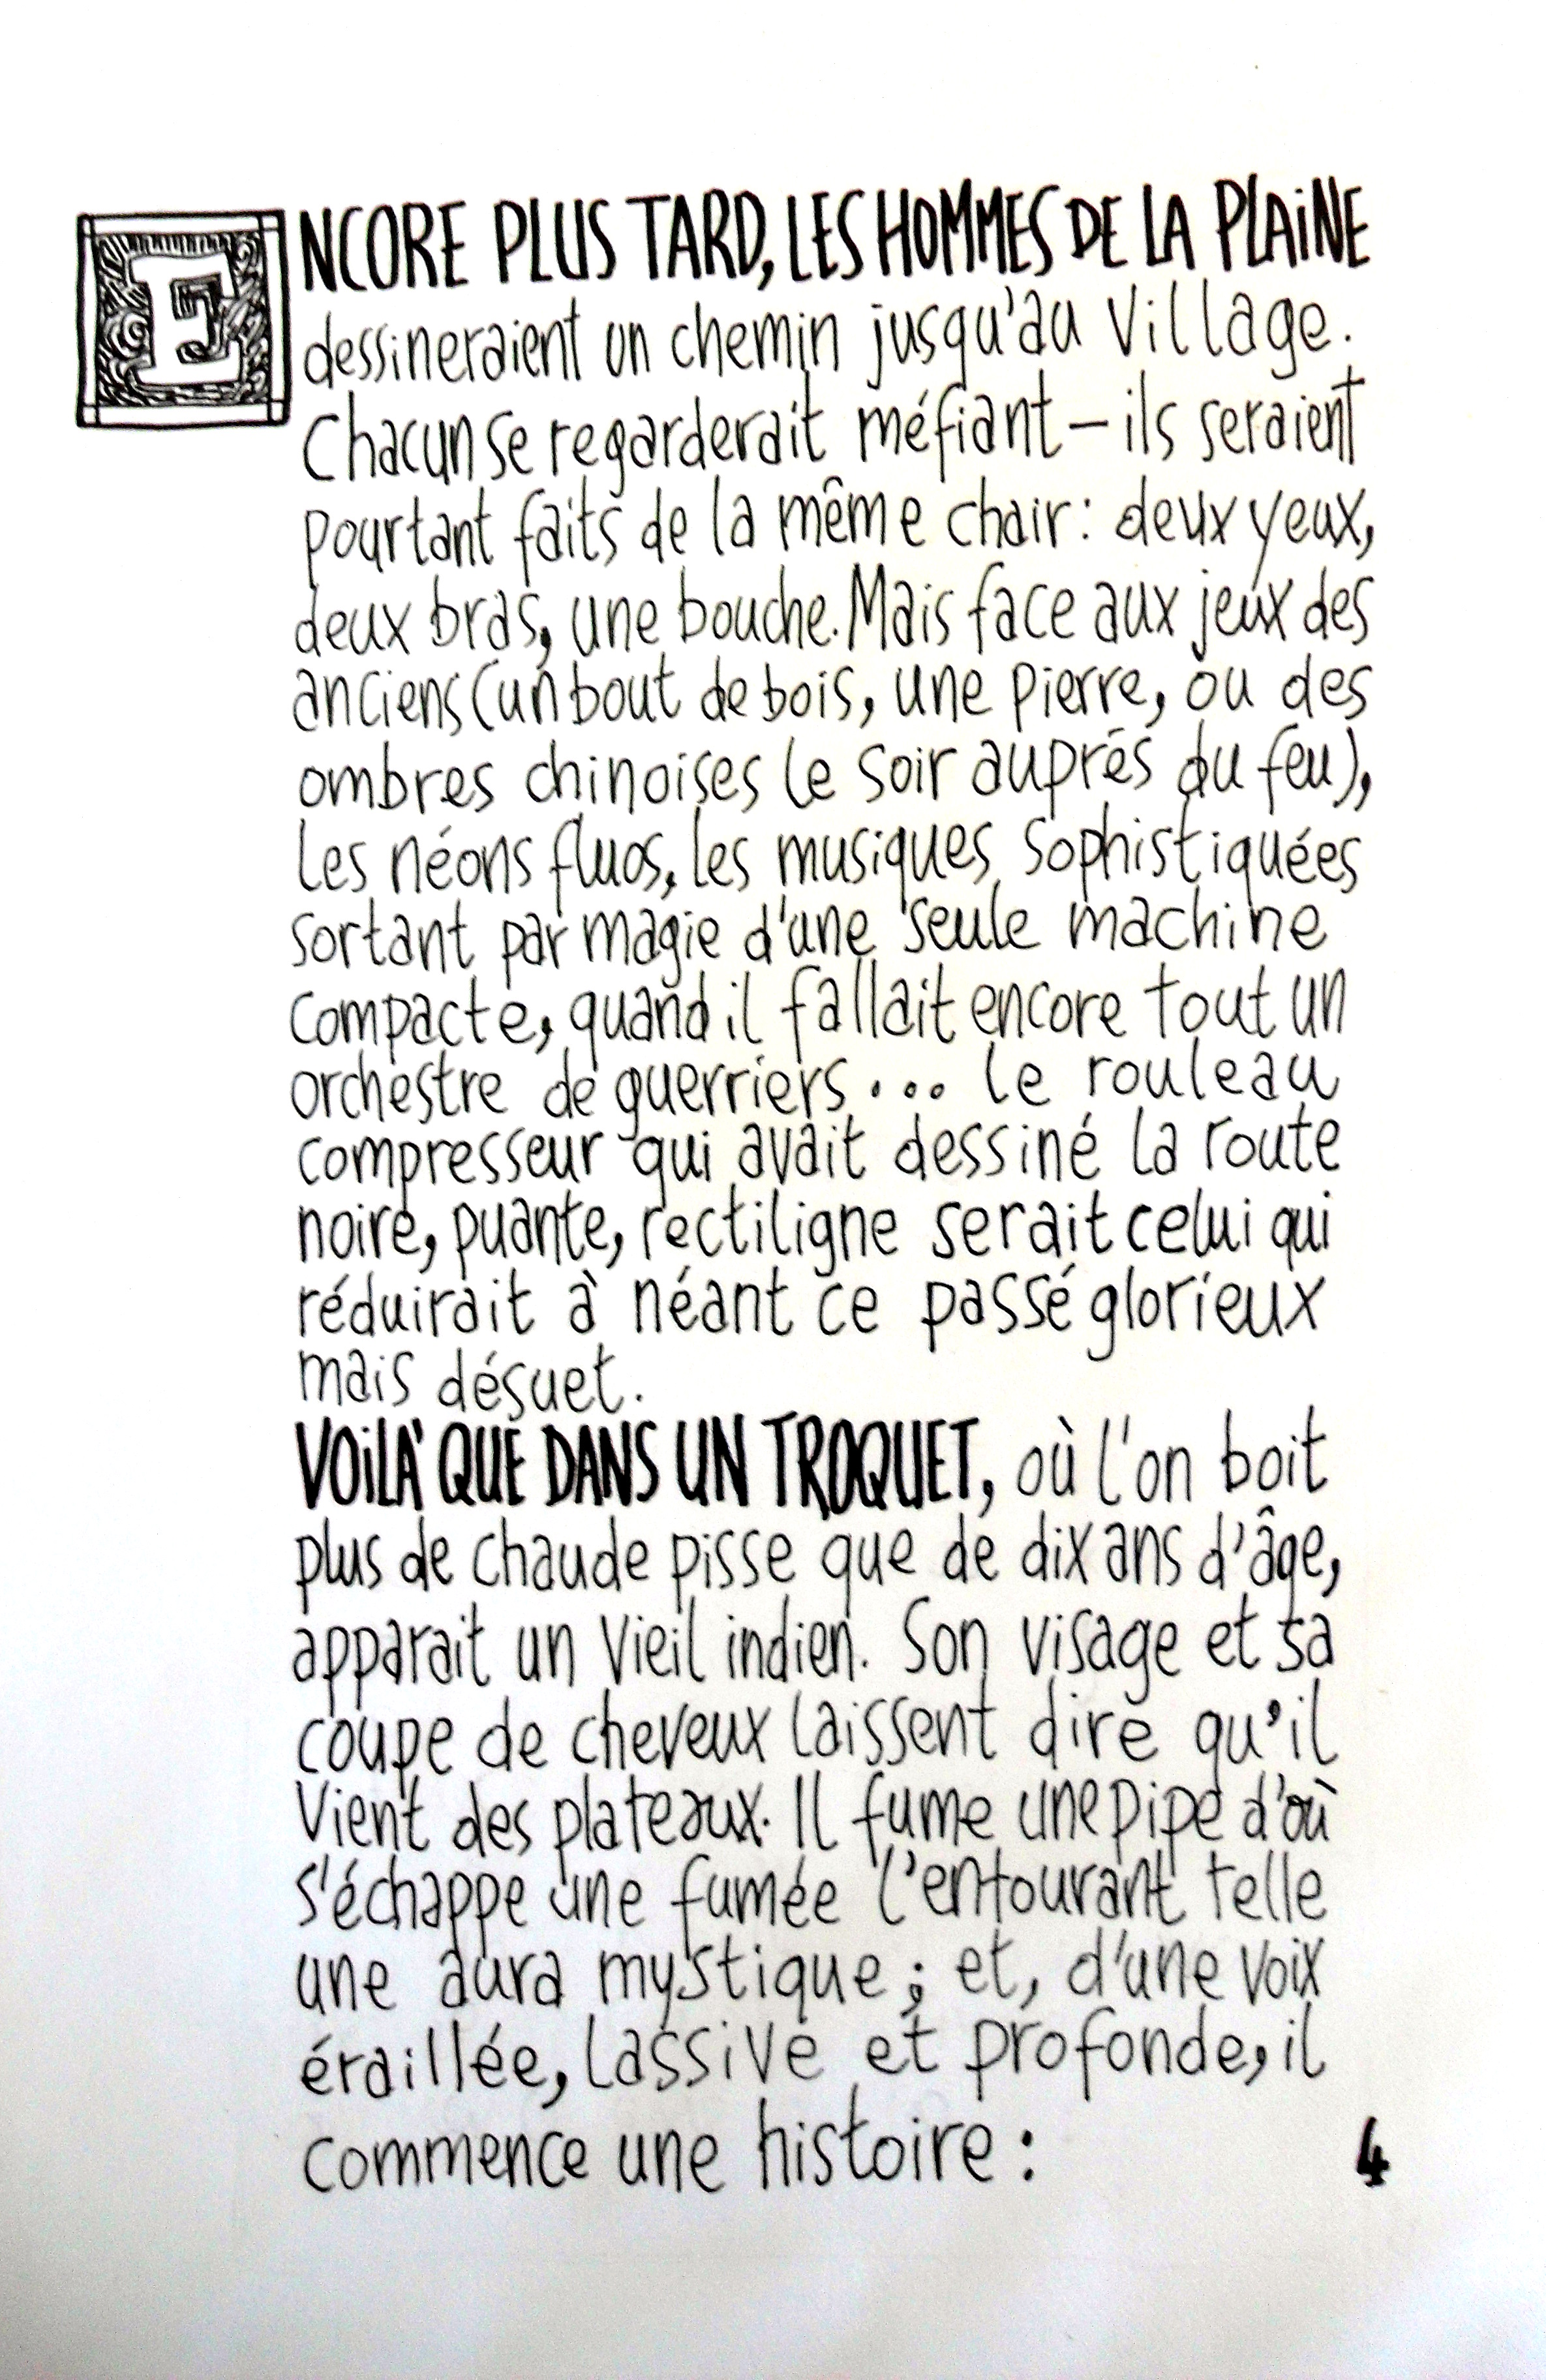 ENCORE PLUS TARD, LES HOMMES DE LA PLAiNE
dessineraient un chemin jusqu'au village.
Chacun se regarderait méfiant – ils seraient
pourtant faits de la même chair : deux yeux,
deux bras, une bouche. Mais face aux jeux des
anciens (un bout de bois, une pierre, ou des
ombres chinoises le soir auprés du feu),
les néons fluos, les musiques sophistiquées
sortant par magie d'une seule machine
compacte, quand il fallait encore tout un
orchestre de guerriers... le rouleau
compresseur qui avait dessiné la route
noire, puante, rectiligne serait celui qui
réduirait à néant ce passé glorieux
mais désuet.
VOiLÀ QUE DANS UN TROQUET, où l'on boit
plus de chaude pisse que de dix ans d'âge,
apparait un vieil indien. Son visage et sa
coupe de cheveux laissent dire qu'il
vient des plateaux. Il fume une pipe d'où
s'échappe une fumée l'entourant telle
une aura mystique ; et, d'une voix
éraillée, lassive et profonde, il
commence une histoire :
4